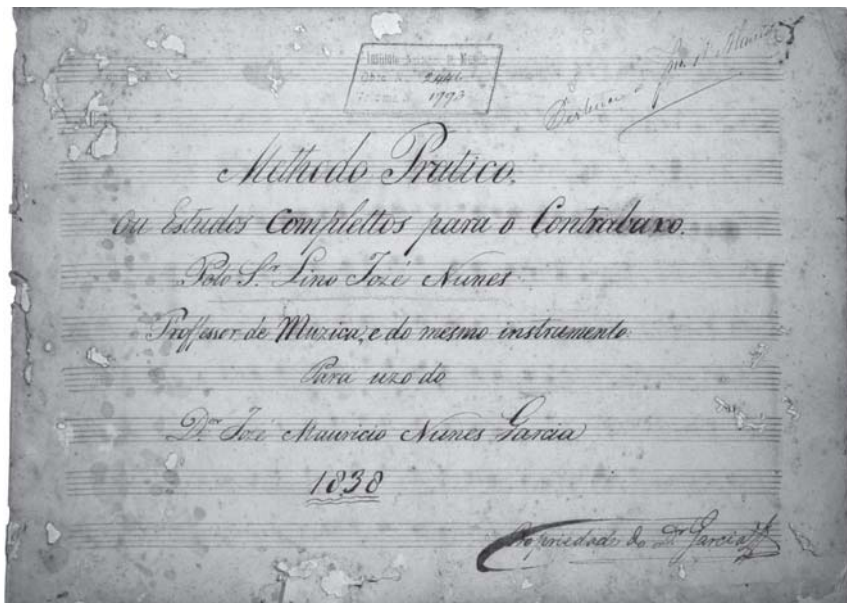 Instituto Nacional de Musica
Obra N. 2446
Volume N. 1793
Methodo Pratico.
Ou Estudos Complettos para o Contrabaxo.
Pelo S.r Lino Jozé Nunes
Proffessor de Muzica, e do mesmo instrumento.
Para uzo do
D.or Jozé Mauricio Nunes Garcia
1838
Propriedade do Dr Garcia